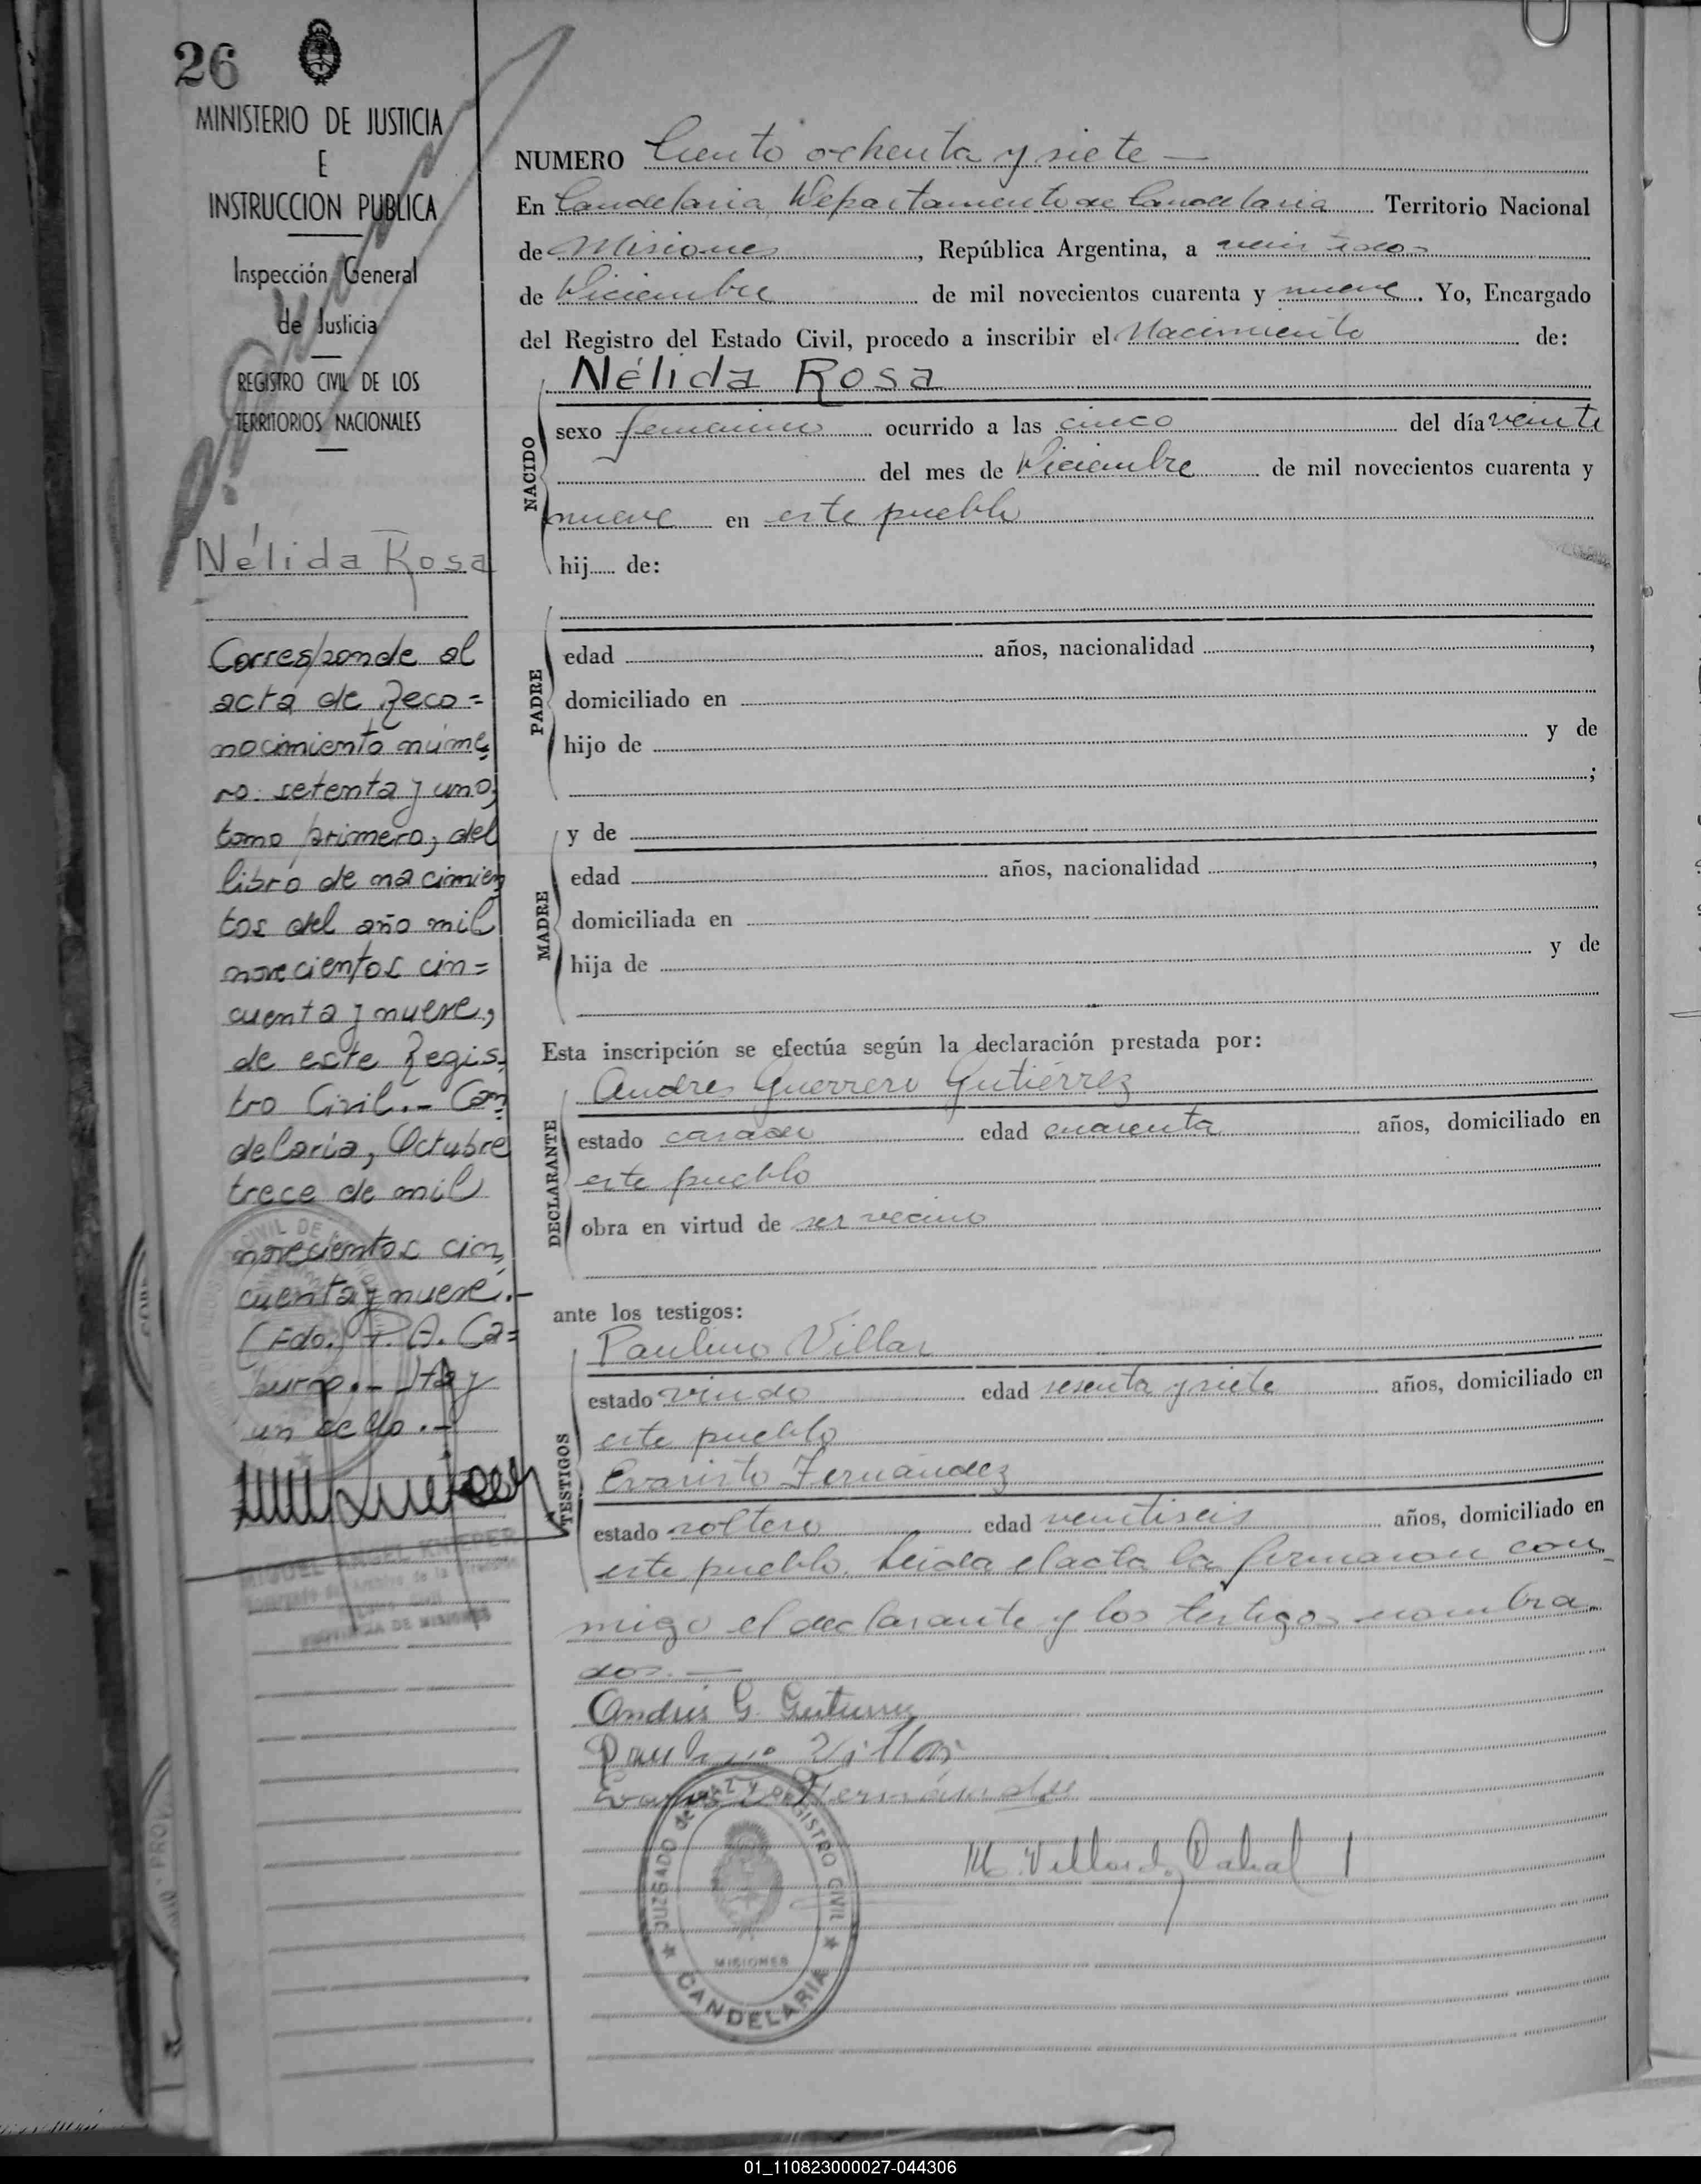 26
MINISTERIO DE JUSTICIA
E
INSTRUCCION PUBLICA
Inspección General
de Justicia
REGISTRO CIVIL DE LOS
TERRITORIOS NACIONALES
Nélida Rosa
Corresponde al
acta de Reco=
nocimiento núme
ro. setenta y uno,
tomo primero, del
libro de nacimien
tos del año mil
novecientos cin=
cuenta y nueve,
de este Regis
tro Civil.- Can
delaria, Octubre
trece de mil
novecientos cin
cuenta y nueve.-
(Fdo.) P. A. Ca=
burro.- Hay
un sello.-
MIGUEL ANGEL KNIEPER
Encargado del Archivo de la Dirección
PROVINCIA DE MISIONES
NUMERO Ciento ochenta y siete —
En Candelaria, Departamento de Candelaria Territorio Nacional
de Misiones, República Argentina, a veintidos
de Diciembre de mil novecientos cuarenta y nueve. Yo, Encargado
del Registro del Estado Civil, procedo a inscribir el Nacimiento de:
Nélida Rosa
NACIDO
sexo femenino ocurrido a las cinco del día veinte
del mes de Diciembre de mil novecientos cuarenta y
nueve en este pueblo
hij...... de:
PADRE
edad años, nacionalidad ,
domiciliado en
hijo de y de
;
MADRE
y de
edad años, nacionalidad ,
domiciliada en
hija de y de
Esta inscripción se efectúa según la declaración prestada por:
DECLARANTE
Andres Guerrero Gutiérrez
estado casado edad cuarenta años, domiciliado en
este pueblo
obra en virtud de ser vecino
ante los testigos:
TESTIGOS
Paulino Villar
estado viudo edad sesenta y siete años, domiciliado en
este pueblo
Evaristo Fernández
estado soltero edad veintiseis años, domiciliado en
este pueblo. Leida el acta la firmaron con-
migo el declarante y los testigos nombra-
dos.—
Andrés G. Gutierrez
Paulino Villar
Evaristo Fernández
JUZGADO de PAZ Y REGISTRO CIVIL
MISIONES
CANDELARIA
01_110823000027-044306